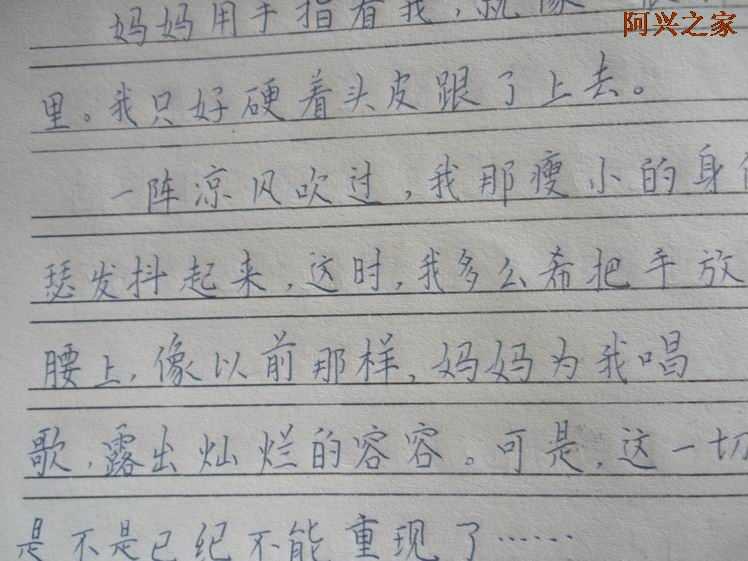 阿兴之家
妈妈用手指着我，就像
里。我只好硬着头皮跟了上去。
一阵凉风吹过，我那瘦小的身
瑟发抖起来，这时，我多么希把手放
腰上，像以前那样，妈妈为我唱
歌，露出灿烂的容容。可是，这一切
是不是已纪不能重现了……